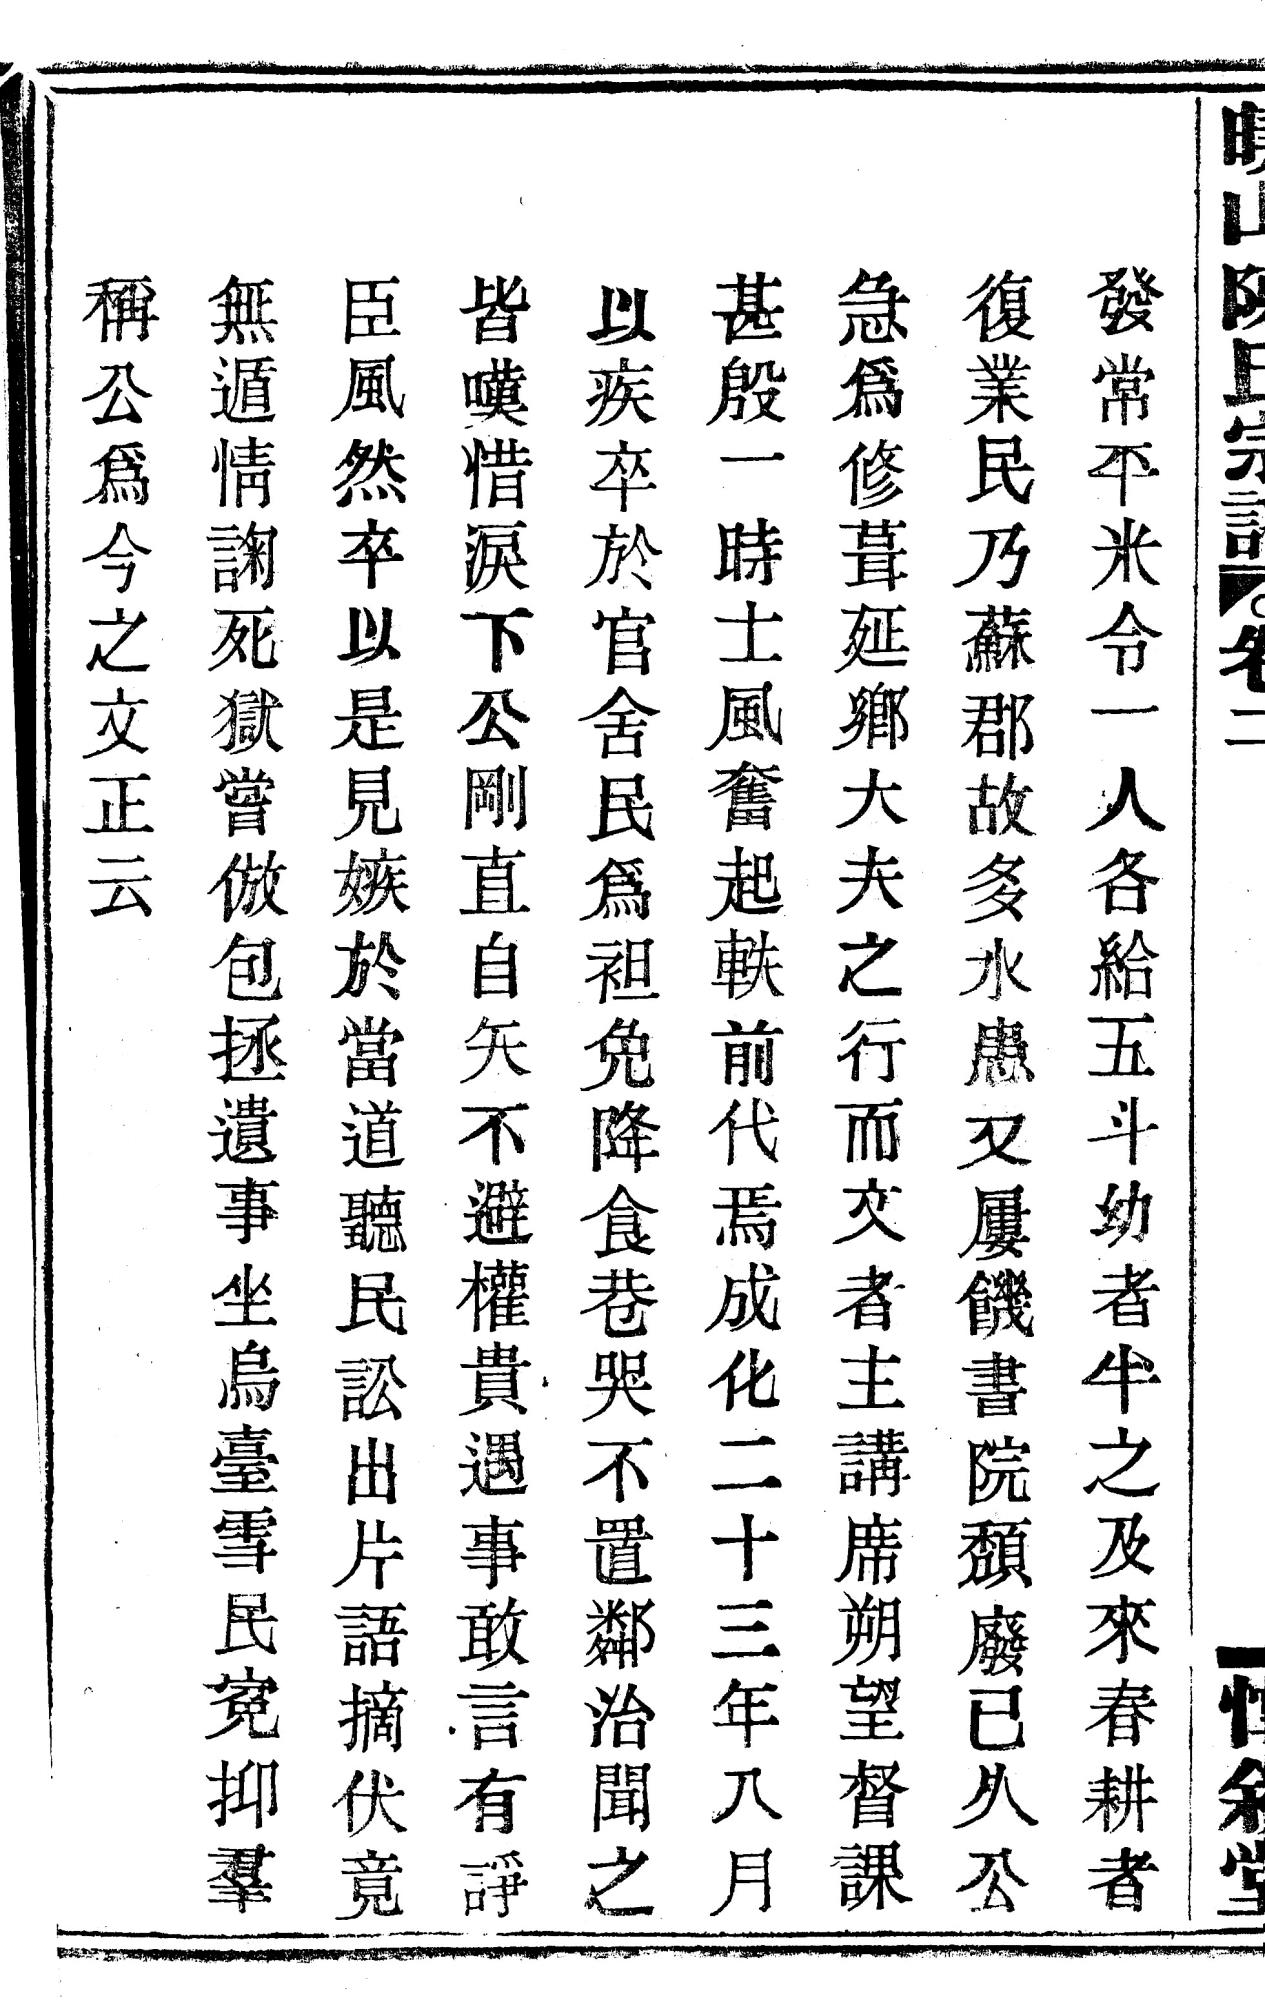 山陳氏宗譜 卷二 惇敘堂
發常平米令一人各給五斗幼者半之及來春耕者
復業民乃蘇郡故多水患又屢饑書院頹廢已久公
急爲修葺延鄉大夫之行而文者主講席朔望督課
甚殷一時士風奮起軼前代焉成化二十三年八月
以疾卒於官舍民爲袒免降食巷哭不置鄰治聞之
皆嘆惜淚下公剛直自矢不避權貴遇事敢言有諍
臣風然卒以是見嫉於當道聽民訟出片語摘伏竟
無遁情讞死獄嘗倣包拯遺事坐烏臺雪民寃抑羣
稱公爲今之文正云